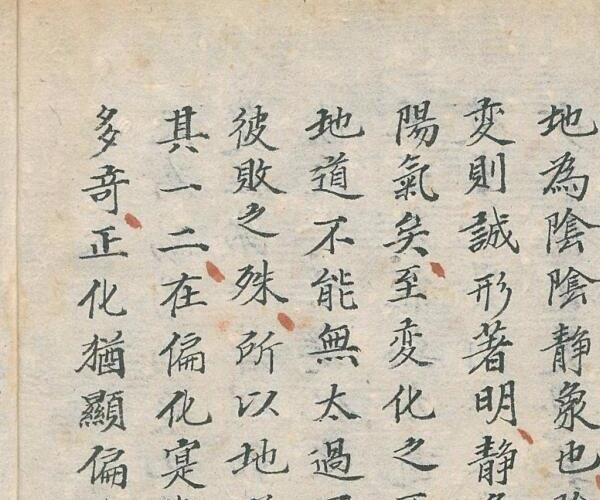 地為陰陰靜象也
変則誠形著明静
陽氣矣至変化之
地道不能無太過
彼敗之殊所以地
其一二在偏化寔
多竒正化猶顯偏